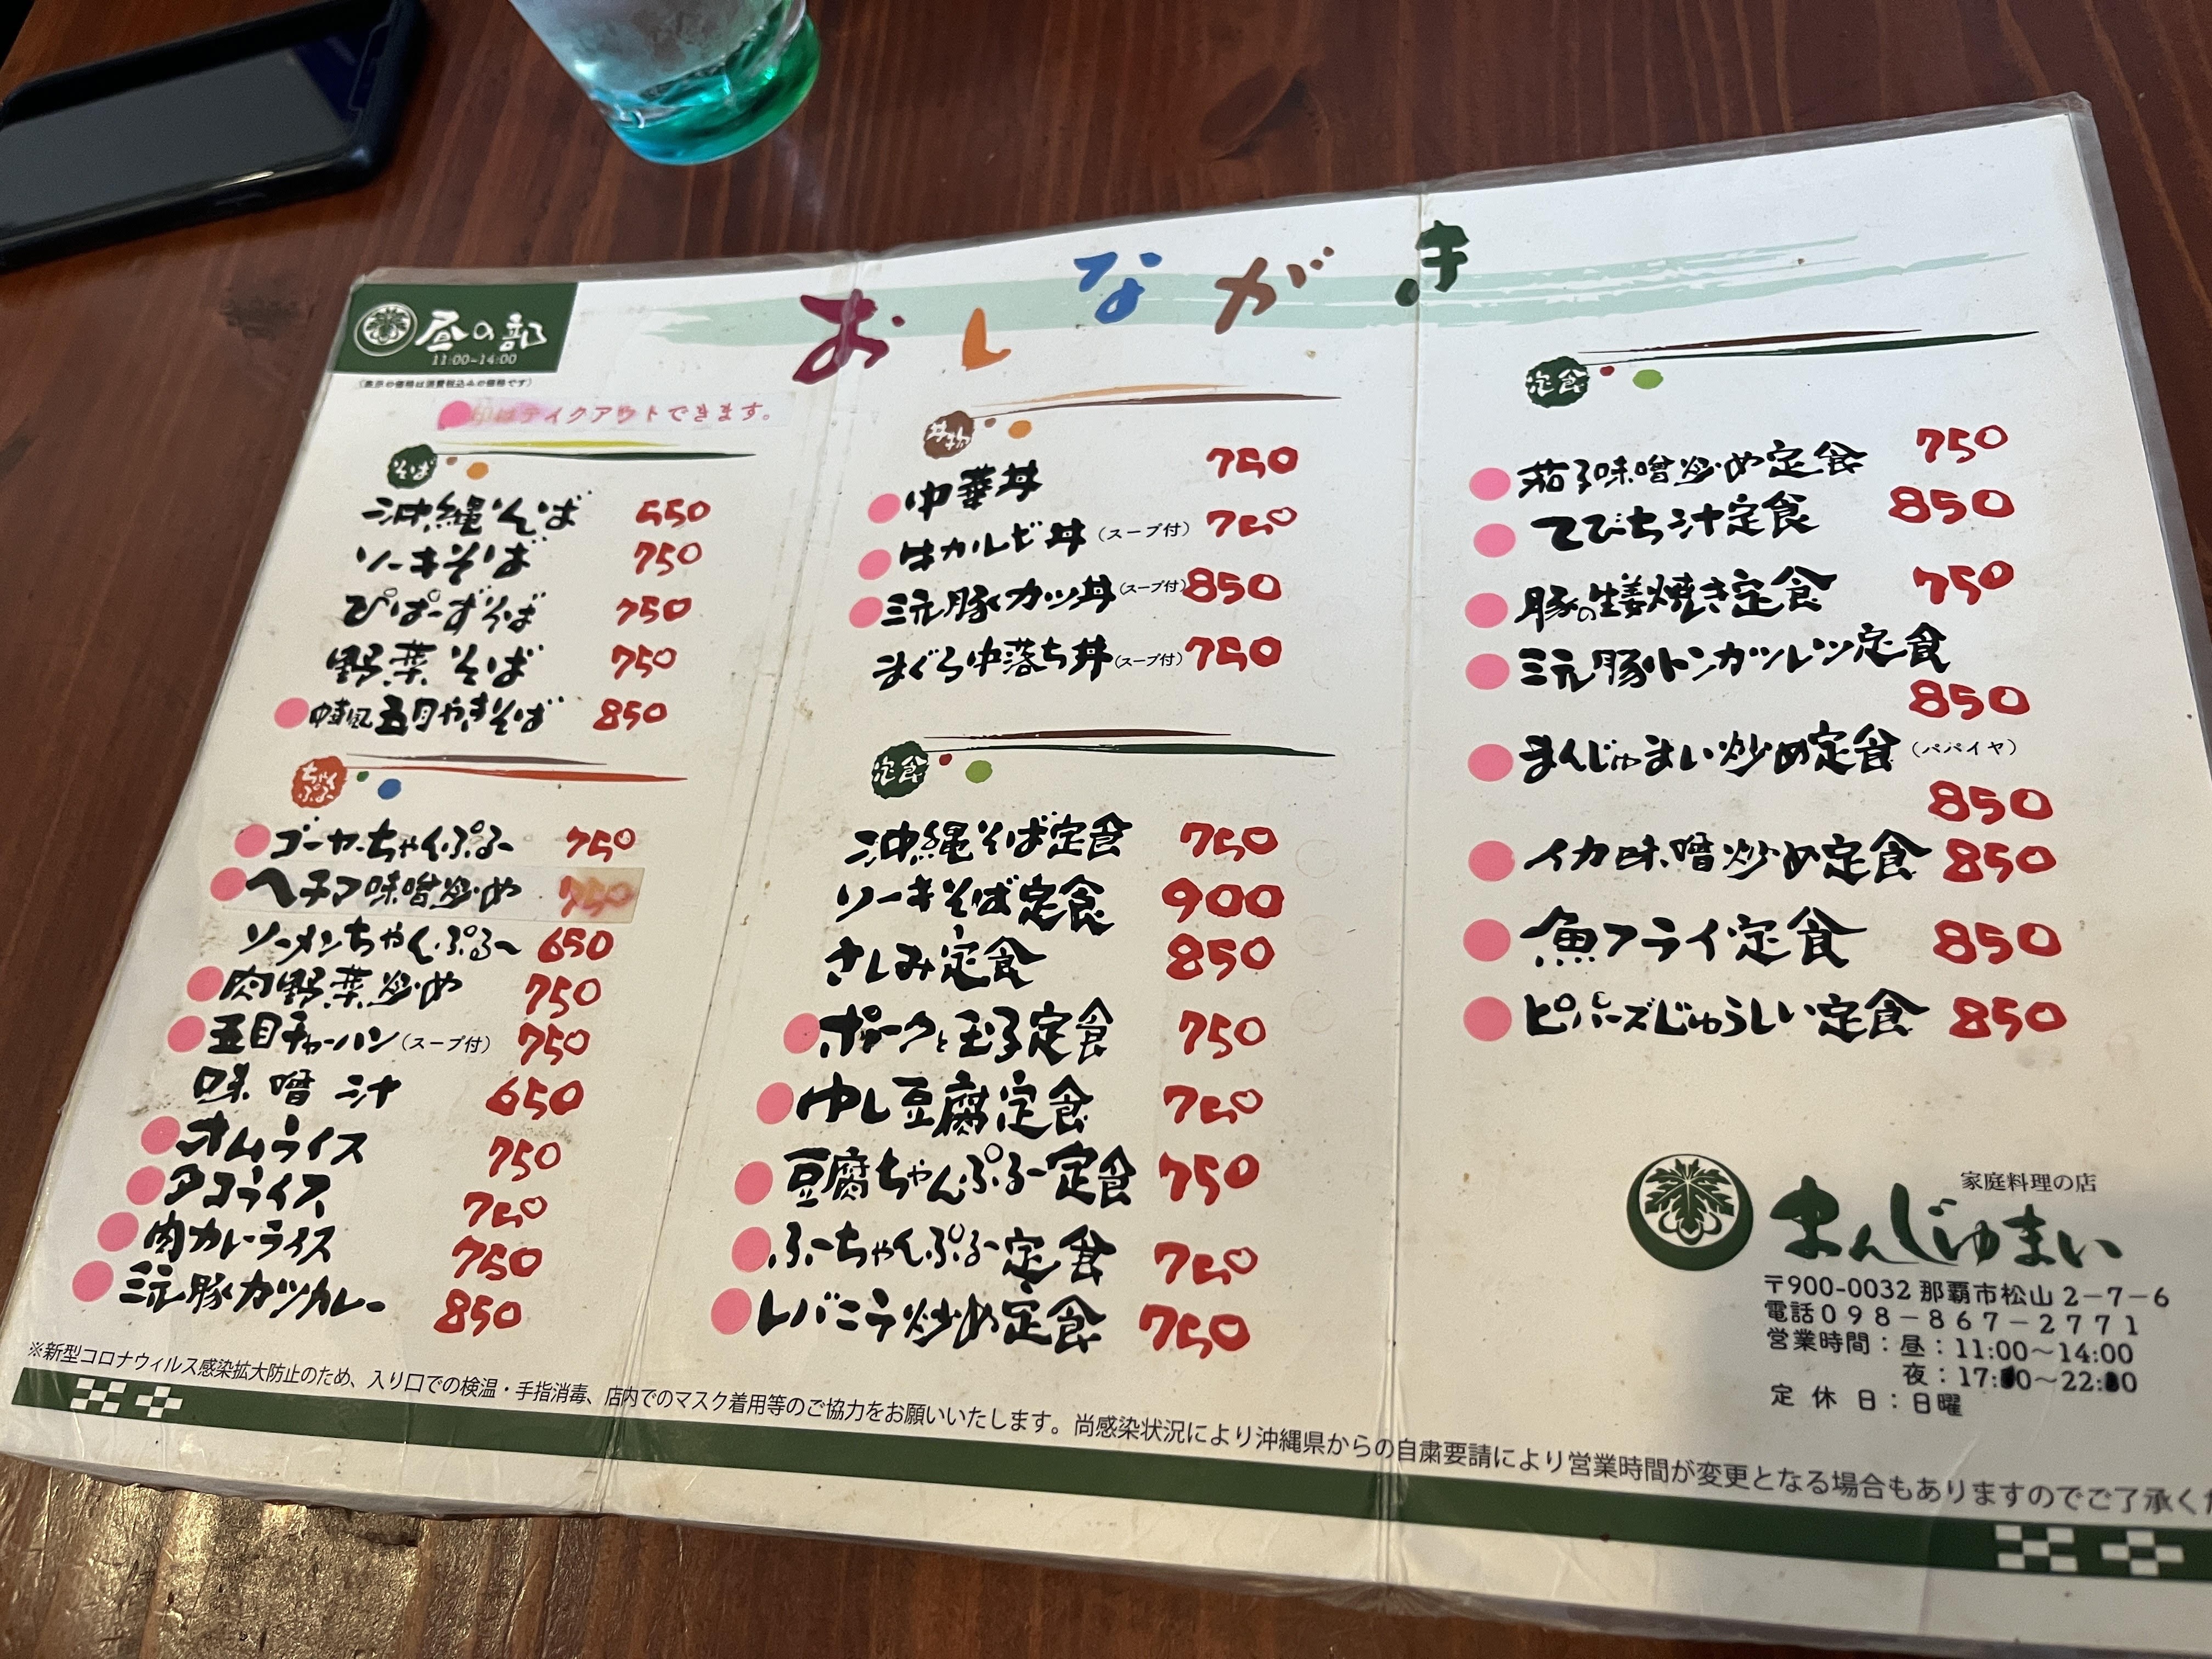 おしながき
昼の部
11:00~14:00
(表示の価格は消費税込みの価格です)
印はテイクアウトできます。
そば
沖縄そば 550
ソーキそば 750
ぴぱーずそば 750
野菜そば 750
中華風五目やきそば 850
ちゃんぷるー
ゴーヤーちゃんぷるー 750
ヘチマ味噌炒め 750
ソーメンちゃんぷるー 650
肉野菜炒め 750
五目チャーハン(スープ付) 750
味噌汁 650
オムライス 750
タコライス 750
肉カレーライス 750
三元豚カツカレー 850
丼物
中華丼 750
牛カルビ丼(スープ付) 750
三元豚カツ丼(スープ付) 850
まぐろ中落ち丼(スープ付) 750
定食
沖縄そば定食 750
ソーキそば定食 900
さしみ定食 850
ポークと玉子定食 750
ゆし豆腐定食 750
豆腐ちゃんぷるー定食 750
ふーちゃんぷるー定食 750
レバニラ炒め定食 750
定食
茄子味噌炒め定食 750
てびち汁定食 850
豚の生姜焼き定食 750
三元豚トンカツレツ定食
850
まんじゅまい炒め定食(パパイヤ)
850
イカ味噌炒め定食 850
魚フライ定食 850
ピパーズじゅうしい定食 850
家庭料理の店
まんじゅまい
〒900-0032 那覇市松山2-7-6
電話098-867-2771
営業時間:昼:11:00～14:00
夜:17:00～22:00
定休日:日曜
※新型コロナウィルス感染拡大防止のため、入り口での検温・手指消毒、店内でのマスク着用等のご協力をお願いいたします。尚感染状況により沖縄県からの自粛要請により営業時間が変更となる場合もありますのでご了承く